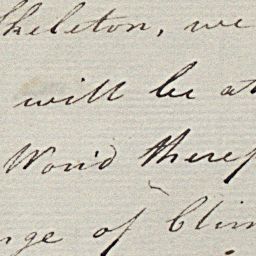 Skeleton, we
will be at
Wou'd theref
nge of Clim